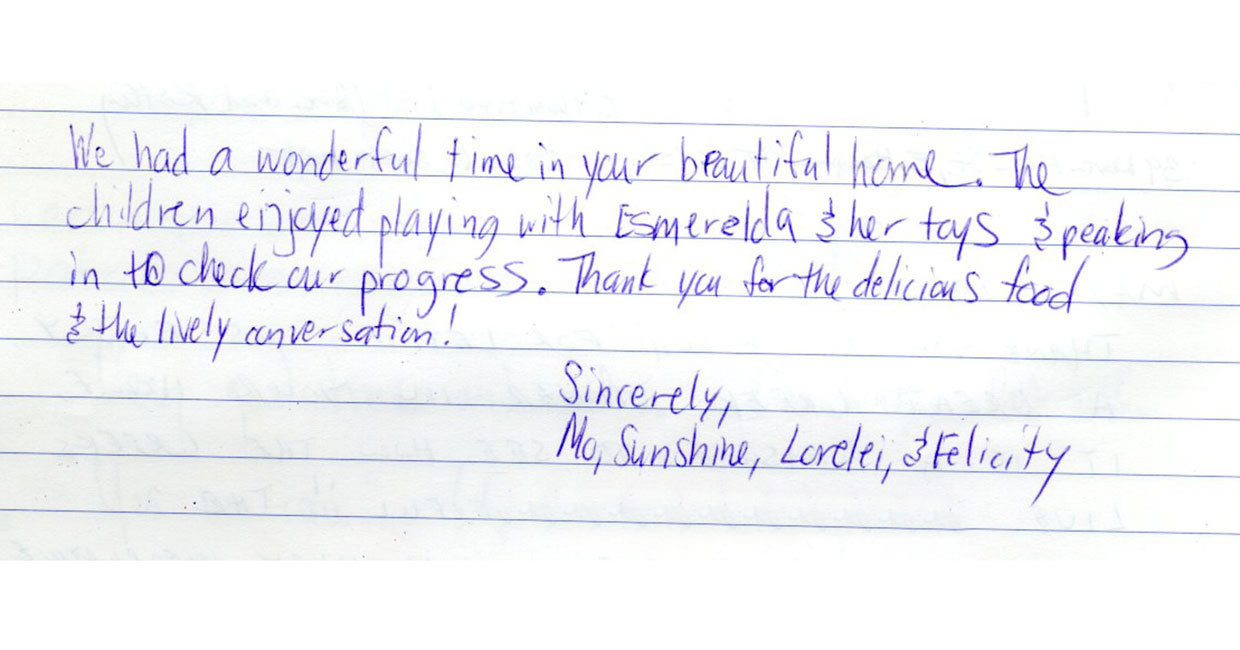 We had a wonderful time in your beautiful home. The
children enjoyed playing with Esmerelda & her toys & peaking
in to check our progress. Thank you for the delicious food
& the lively conversation!
Sincerely,
Mo, Sunshine, Lorelei, & Felicity